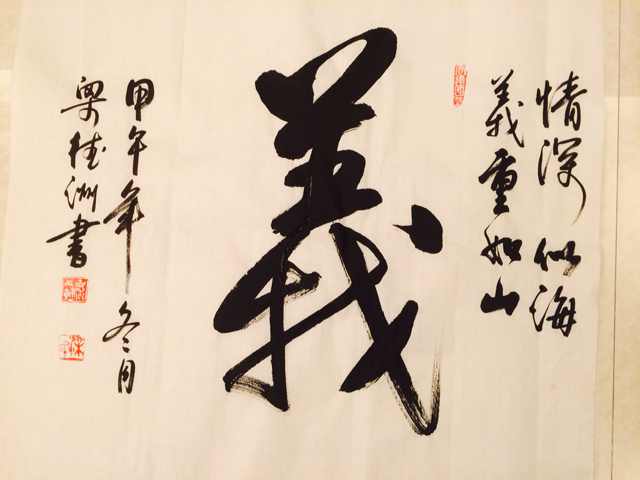 情深似海
義重如山
義
甲午年冬月
梁桂洲書